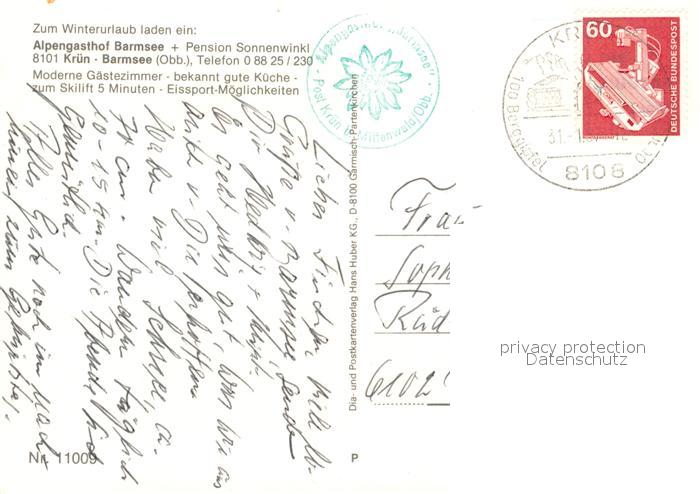 Zum Winterurlaub laden ein:
Alpengasthof Barmsee + Pension Sonnenwinkl
8101 Krün - Barmsee (Obb.), Telefon 0 88 25 / 230
Moderne Gästezimmer - bekannt gute Küche -
zum Skilift 5 Minuten - Eissport-Möglichkeiten
Alpengasthof "Barmsee"
Post Krün b. Mittenwald/Obb.
60
DEUTSCHE BUNDESPOST
KR
100 Bergkäfer
31.-1.
8108
viele
Grüße v. Barmsee
Die Hedwig +
es geht uns gut, was wir aus
auch v. Dir erhoffen
Haben viel Schnee, ca.
70 cm. Wandern täglich
10-15 km. Die Abende sind
gemütlich.
Alles Gute noch im Nach-
Dia- und Postkartenverlag Hans Huber KG., D-8100 Garmisch-Partenkirchen
Frau
Soph
Räd
6102
privacy protection
Datenschutz
Nr. 11009
P